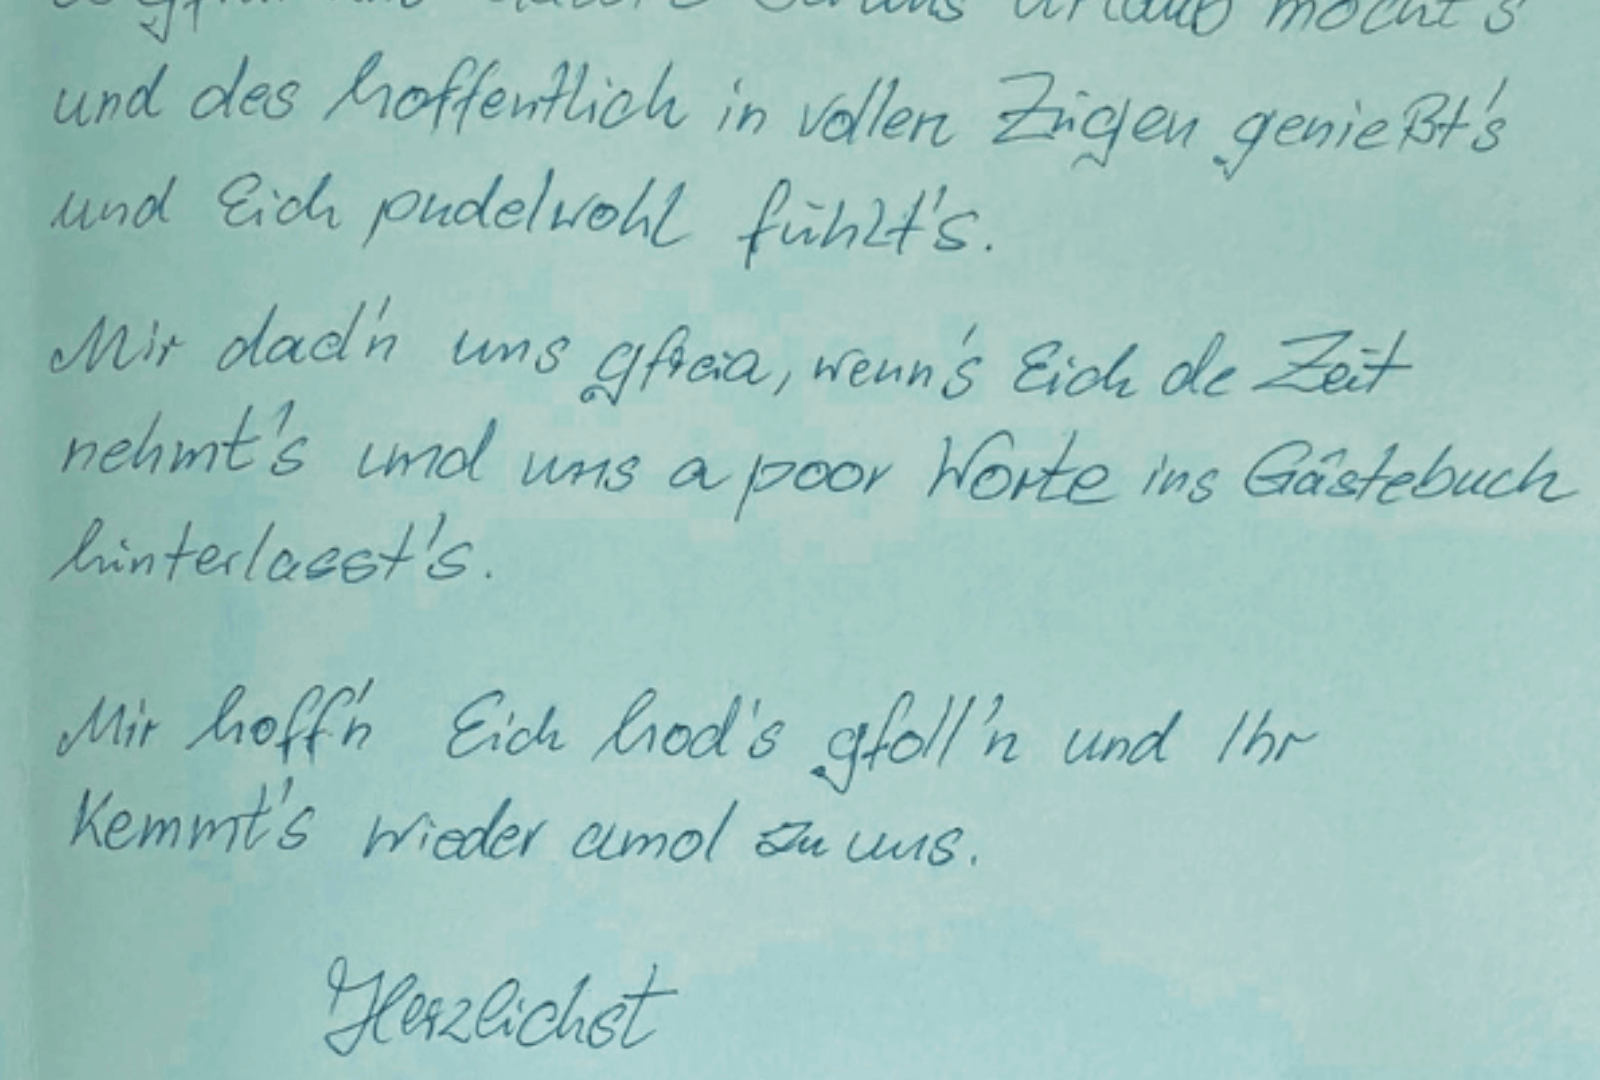 uns Urlaub mocht's
und des hoffentlich in vollen Zügen genießt's
und Eich pudelwohl fühlt's.
Mir dad'n uns gfreia, wenn's Eich de Zeit
nehmt's und uns a poor Worte ins Gästebuch
hinterlasst's.
Mir hoff'n Eich hod's gfoll'n und Ihr
Kemmt's wieder amol zu uns.
Herzlichst